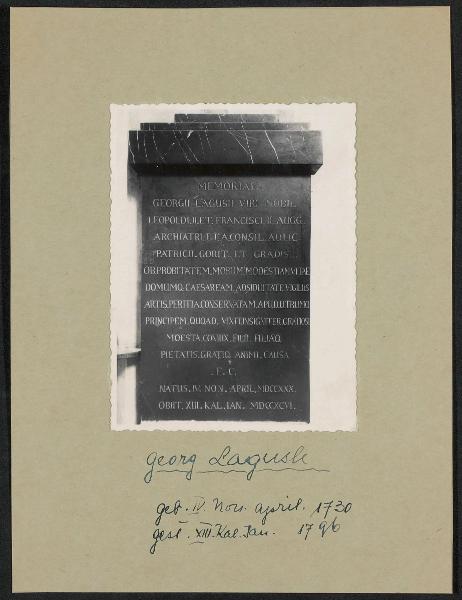 MEMORIAE
GEORGII LAGUSII VIRI NOBIL.
LEOPOLDI II. ET. FRANCISCI II. AUGG.
ARCHIATRI. ET. A. CONSIL. AULIC.
PATRICII. GORIT. ET GRADISC.
OB. PROBITATEM. MORUM. MODESTIAM
DOMUMQ. CAESAREAM. ADSIDUITATE. VIGILIIS
ARTIS. PERITIA. CONSERVATAM. APUD. UTRUMQ
PRINCIPEM. QUOAD. VIXIT. INSIGNITER. GRATIOSI
MOESTA. CONIUX. FILII. FILIAQ.
PIETATIS. GRATIQ. ANIMI. CAUSA
. P. C.
NATUS. IV. NON. APRIL. MDCCXXX.
OBIIT. XIII. KAL. IAN. MDCCXCVI.
georg Lagush
geb. IV. Non. april. 1730
gest. XIII. Kal. Jan. 1796